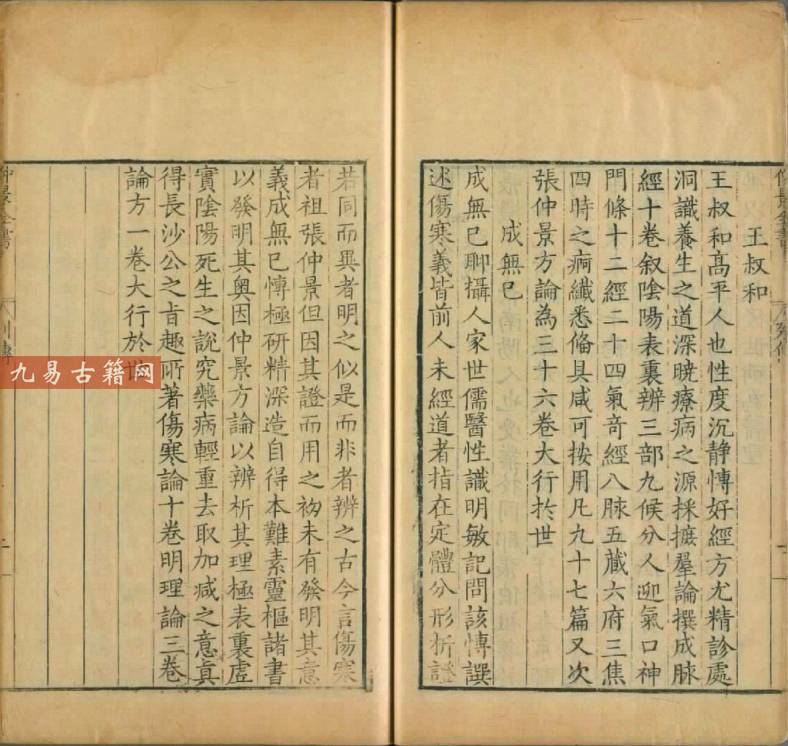 王叔和
王叔和高平人也性度沉静慱好經方尤精診處
洞識養生之道深曉療病之源採摭羣論撰成脉
經十卷叙陰陽表裏辨三部九候分人迎氣口神
門條十二經二十四氣竒經八脉五藏六府三焦
四時之痾纖悉俻具咸可按用凡九十七篇又次
張仲景方論為三十六卷大行扵世
成無已
成無已聊攝人家世儒醫性識明敏記問該慱譔
述傷寒義皆前人未經道者指在定體分形析證
若同而異者明之似是而非者辨之古今言傷寒
者祖張仲景但因其證而用之初未有發明其意
義成無已慱極研精深造自得本難素靈樞諸書
以發明其奧因仲景方論以辨析其理極表裏虛
實陰陽死生之說究藥病輕重去取加减之意真
得長沙公之旨趣所著傷寒論十卷明理論三卷
論方一卷大行於世
仲景全書
列傳
九易古籍网